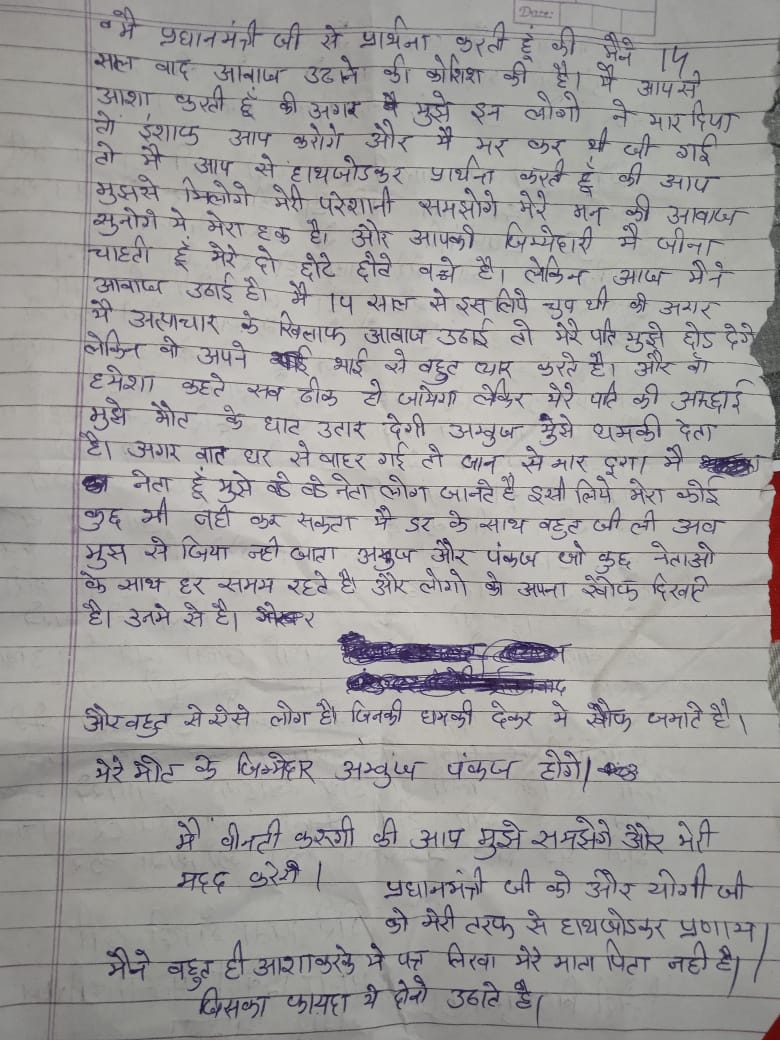 Date:
मै प्रधानमंत्री जी से प्रार्थना करती हूँ की मैने 14
साल वाद आवाज उठाने की कोशिश की है। मै आपसे
आशा करती हूँ की अगर मुझे इन लोगो ने मार दिया
तो इंशाफ आप करोगे और मै मर कर भी जी गई
तो मै आप से हाथजोडकर प्रार्थना करती हूँ की आप
मुझसे मिलोगे मेरी परेशानी समझोगे मेरे मन की आवाज
सुनोगे ये मेरा हक है। और आपकी जिम्मेदारी मै जीना
चाहती हूँ मेरे दो छोटे छोटे बच्चे है। लेकिन आज मैने
आवाज उठाई है। मै 14 साल से इस लिये चुप थी की अगर
मै अत्याचार के खिलाफ आवाज उठाई तो मेरे पति मुझे छोड देगे
लेकिन वो अपने भाई से वहुत प्यार करते है। और वो
हमेशा कहते सव ठीक हो जायेगा लेकिन मेरे पति की अच्छाई
मुझे मौत के घाट उतार देगी अम्वुज मुझे धमकी देता
है। अगर वात घर से वाहर गई तो जान से मार दूगा मै
नेता हूँ मुझे वडे वडे नेता लोग जानते है इसी लिये मेरा कोई
कुछ भी नही कर सकता मै डर के साथ वहुत जी ली अव
मुझ से जिया नही जाता अम्वुज और पंकज जो कुछ नेताओ
के साथ हर समय रहते है और लोगो को अपना खौफ दिखाते
है। उनमे से है।
और वहुत से ऐसे लोग है। जिनकी धमकी देकर ये खौफ जमाते है।
मेरे मौत के जिम्मेदार अम्वुज पंकज होगे।
मै वीनती करुगी की आप मुझे समझेगे और मेरी
मदद करेगे।
प्रधानमंत्री जी को और योगी जी
को मेरी तरफ से हाथजोडकर प्रणाम
मैने वहुत ही आशा करके ये पत्र लिखा मेरे माता पिता नही है।
जिसका फायदा ये दोनो उठाते है।